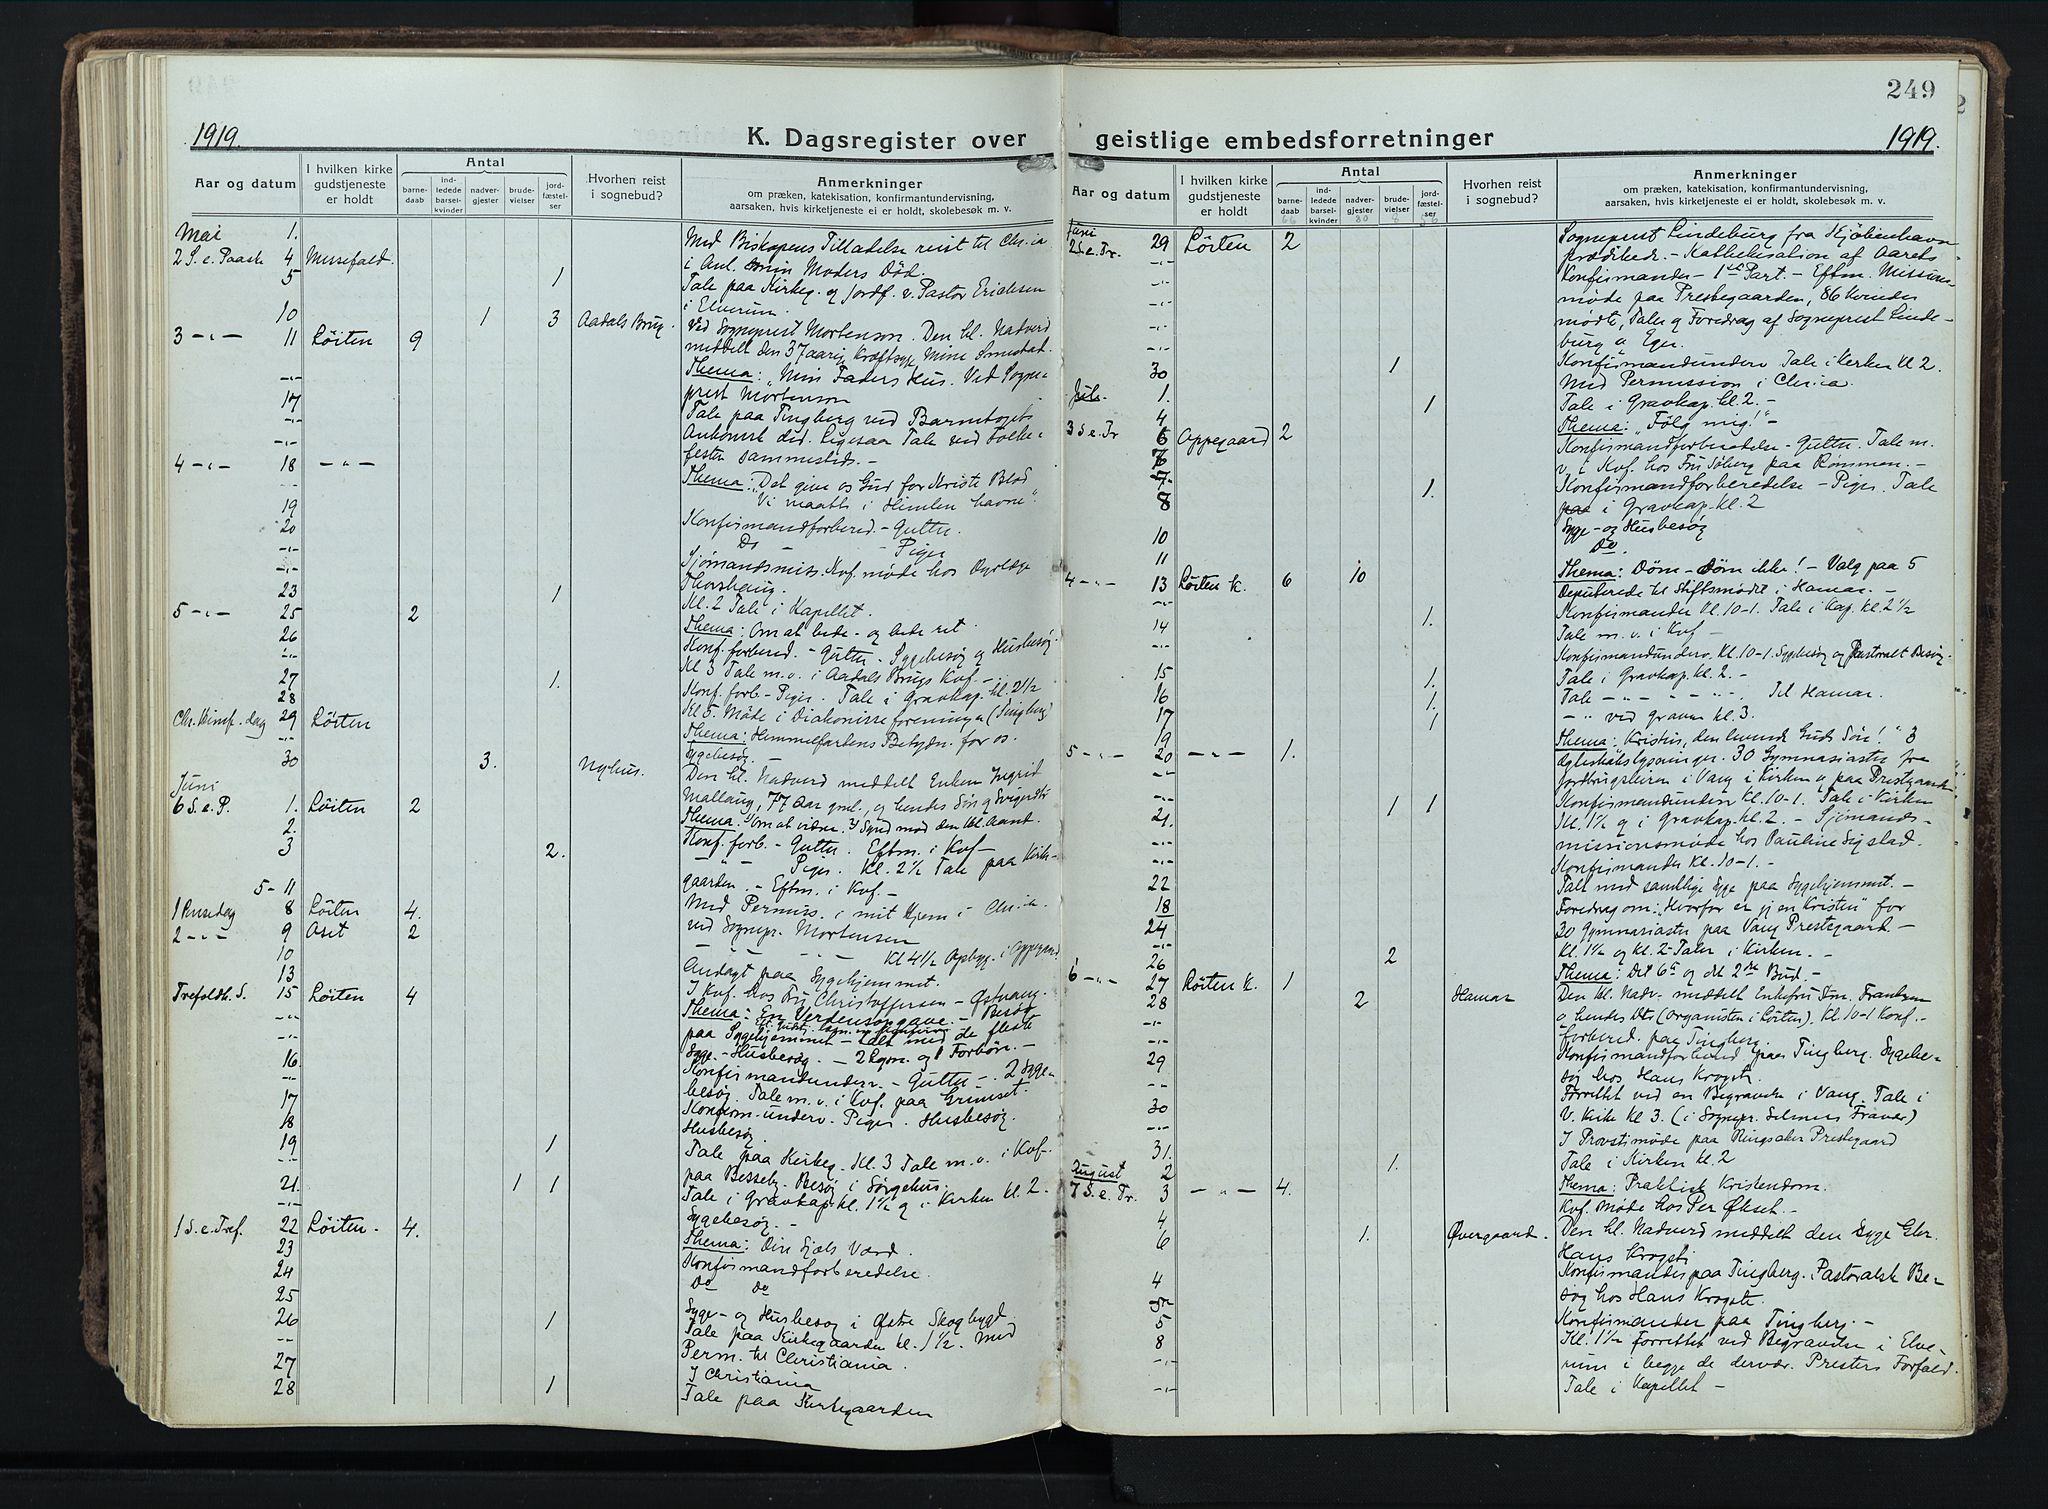 249
1919.
K. Dagsregister over geistlige embedsforretninger
1919.
Aar og datum
I hvilken kirke gudstjeneste er holdt
Antal
barnedaab
indledede barselkvinder
nadvergjester
brudevielser
jordfæstelser
Hvorhen reist i sognebud?
Anmerkninger
om præken, katekisation, konfirmantundervisning,
aarsaken, hvis kirketjeneste ei er holdt, skolebesøk m. v.
Mai 1. Med Biskopens Tilladelse reist til Chr.ia
2 S. e. Paask 4 Messefald. i Anl. min Moders Död.
5 1 Tale paa Kirkeg. og Jordf. v. Pastor Erichsen
i Elverum.
10 1 3 Aadals Brug. Ved Sogneprest Mortenson. Den hl. Nadverd
3 -"- 11 Löiten 9 meddelt den 37 aarig Kræftsyge Mine
Thema: "Min Faders Hus. Ved Sogne-
17 prest Mortenson
Tale paa Tingberg ved Barnetogets
Ankomst did. Ligesaa Tale ved Folke-
4 -"- 18 -"- festen sammesteds. -
Thema: "Det give os Gud for Kriste Blod
19 Vi maatte i Himlen havne".
20 Konfirmandforbered. - Gutter.
Do - Piger
Sjömandsmiss. Kvf. møde hos Dyrlæge
23 1 Thorshaug.
5 -"- 25 2 Kl. 2 Tale i Kapellet.
26 Thema: Om at bede - og bede ret.
Konf. forbered. - Gutter. Sygebesøg og Husbesøg.
27 1. Kl 3 Tale m. v. i Aadals Brugs Kvf -
28 Konf. forb - Piger. Tale i Gravkap. kl. 2 1/2
Chr. Himf. dag 29 Löiten Kl 5. Møde i Diakonisseforeningen (Tingberg)
Thema: Himmelfartens Betydn. for os.
30 3. Nyhus. Sygebesøg. -
Juni Den hl. Nadverd meddelt Enken Ingrid
6 S. e. P. 1. Löiten 2 77 Aar gml., og hendes Søn og Svigerdtr
2. Thema: Om at vidne. Synd mod den hl. Aand.
3 2. Konf. forb. - Gutter. Eftm. i Kvf -
-"- Piger. Kl. 2 1/2 Tale paa Kirke-
5-11 gaarden. - Eftm. i Kvf. -
1 Pinsedag 8 Löiten 4. Med Permiss. i mit Hjem i Chr.ia.
2 -"- 9 Aset 2 ved Sognepr. Mortensen
10 Kl 4 1/2 Opbyg. i Oppegaard
13 Andagt paa Sygehjemmet.
Trefoldh. S. 15 Löiten 4 I Kvf. hos Fru Christoffersen - Østvang.
Thema: En Verdensopgave. - Besøk
paa Sygehjemmet - talt med de fleste
16 Syge. - Husbesøg. - 2 Lysn. og 1 Forbön. -
Konfirmandunderv. - Gutter - 2 Syge-
17 besøg. Tale m. v. i Kvf. paa Grimset.
18 Konfirm. underv. Piger. Husbesøg.
19 1 Husbesøg.
Tale paa Kirkeg. Kl. 3 Tale m. v. i Kvf.
21. 1 1 paa Besseby. Besøg i Sørgehus.
Tale i Gravkap. kl. 1 1/2 og i Kirken kl 2.
1 S. e. Tref. 22 Löiten. 4. Sygebesøg. -
23 Thema: Din Sjæls Værd.
24 Konfirmandforberedelse.
25 Do Do
26 1 Syge- og Husbesøg i Østre Skogbygd
Tale paa Kirkegaarden kl. 1 1/2. Med
27 Perm. til Christiania.
28 1 I Christiania
Tale paa Kirkegaarden
Aar og datum
I hvilken kirke gudstjeneste er holdt
Antal
barnedaab
indledede barselkvinder
nadvergjester
brudevielser
jordfæstelser
66 80 8 56
Hvorhen reist i sognebud?
Anmerkninger
om præken, katekisation, konfirmantundervisning,
aarsaken, hvis kirketjeneste ei er holdt, skolebesøk m. v.
Juni Sogneprest Lindeburg fra Kjøbenhavn
2 S. e. Tr. 29 Löiten 2 prædiked. - Kathekisation af Aarets
Konfirmander - 1ste Part. - Eftm. Missions-
møde paa Prestegaarden, 86 Kvinder
mødte, Taler og Foredrag af Sogneprest Linde-
burg og Eger.
30 1 Konfirmandunderv. Tale i Kirken kl 2.
Juli 1. Med Permission i Chr.ia.
4 1 Tale i Gravkap. kl. 2. -
3 S. e. Tr 6 Oppegaard 2 Thema: "Fölg mig!" -
7 Konfirmandforberedelse - Gutter. Tale m.
v. i Kvf. hos Fru Söberg paa Rønsmoen. -
7. 1. Konfirmandforberedelse - Piger. Tale
8 i Gravkap. kl. 2
Syge- og Husbesøg
10 Do.
11
4 -"- 13 Löiten k. 6 10 Thema: Døm - Døm ikke! - Valg paa 5
Deputerede til Stiftsmødet i Hamar. -
14 1. Konfirmander kl. 10-1. Tale i Kap. kl. 2 1/2
Tale m. v. i Kvf -
Konfirmandunderv. Kl. 10-1. Sygebesøg og Pastoralt Besøg.
15 1. Tale i Gravkap. kl. 2. -
16 1. Tale -"- -"- Til Hamar.
17 1 -"- ved Graven kl. 3.
19 Thema: "Kristus, den levende Guds Søn!" 3
5 -"- 20 -"- 1. Ægteskabslysninger. 30 Gymnasiaster fra
Jordbrugsleiren i Vang i Kirken og paa Prestegaard
1 1 Konfirmandunderv Kl. 10-1. Tale i Kirken
21. Kl. 1 1/2 og i Gravkap. kl. 2. - Sjömands-
missionsmøde hos Pauline Sigstad.
Konfirmander kl. 10-1. -
22 Talt med samtlige Syge paa Sygehjemmet. -
18 Foredrag om: "Hvorfor er jeg en Kristen" for
24 30 Gymnasiaster paa Vang Prestegaard -
2 Kl. 1 1/2 og kl. 2 Taler i Kirken. -
26 Thema: Det 6te og det 2det Bud. -
6 -"- 27 Löiten k. 1
28 2 Hamar Den hl. Nadv. meddelt Enkefru
og hendes Dtr. (Organisten i Löiten). Kl. 10-1 Konf.-
forbered. paa Tingberg.
29 Konfirmandforbered paa Tingberg. Sygebe-
søg hos Hans Krogsti.
30 Forrettet ved en Begravelse i Vang. Tale i
V. Kirke kl 3. (i Sognepr. Selmers Fravær)
31. I Provstimøde paa Ringsaker Prestegaard
August 2 1. Tale i Kirken kl. 2
7 S. e. Tr. 3 -"- 4. Thema: Praktisk Kristendom.
4 Kvf. Møde hos Per Økset. -
6 1. Øvergaard. Den hl. Nadverd meddelt den Syge Gbr.
Hans Krogsti
4 Konfirmander paa Tingberg. Pastoralsk Be-
søg hos Hans Krogsti.
5 Konfirmander paa Tingberg. -
8 Kl. 1 1/2 forrettet ved Begravelse i Elve-
rum i begge de dervær. Presters Forfald.
Tale i Kapellet -